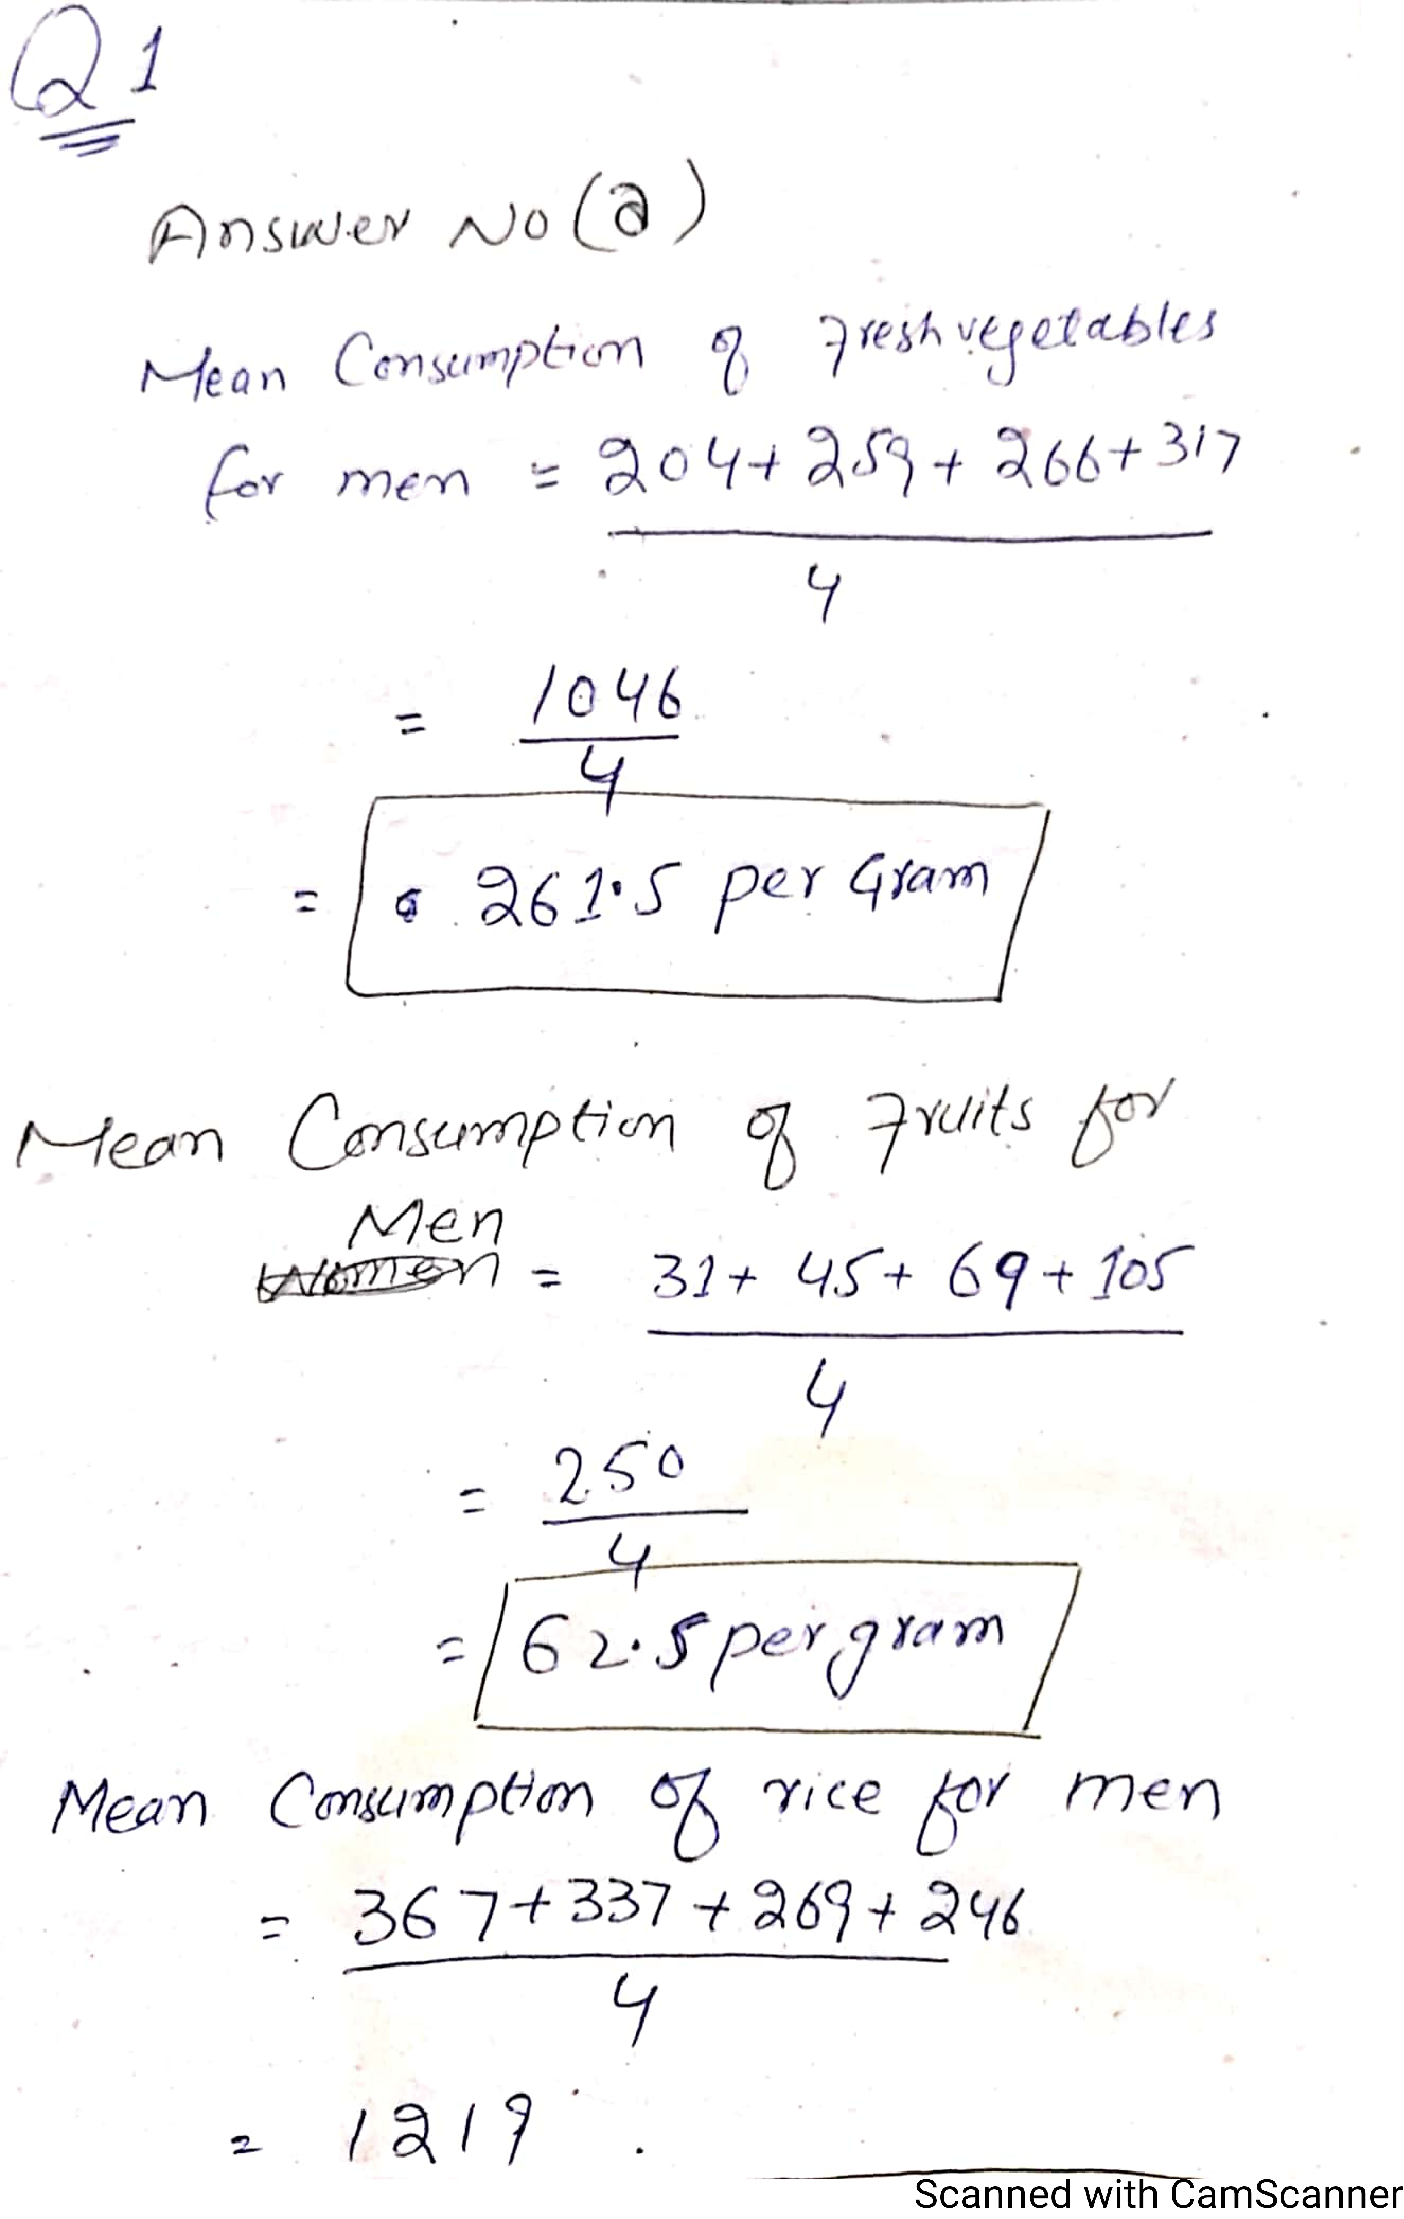 Q 1
Answer No (a)
Mean Consumption of Fresh vegetables
for men = 204 + 259 + 266 + 317
4
= 1046
4
= 261.5 per Gram
Mean Consumption of Fruits for
Men
Women = 31 + 45 + 69 + 105
4
= 250
4
= 62.5 per gram
Mean Consumption of rice for men
= 367 + 337 + 269 + 246
4
= 1219
Scanned with CamScanner